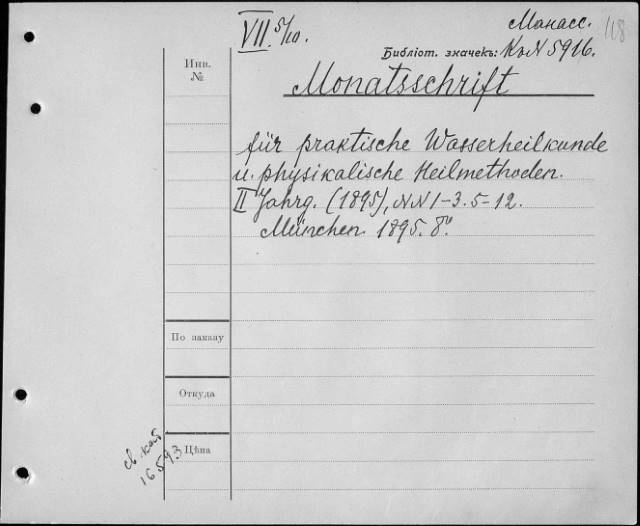 VII. 5/10.
Манасс.
118
Библіот. значекъ: К.N 5916.
Инв.
№
Monatsschrift
für praktische Wasserheilkunde
u. physikalische Heilmethoden.
II Jahrg. (1895), NN 1-3. 5-12.
München. 1895. 8°.
По заказу
Откуда
Цѣна
св. каб
16593